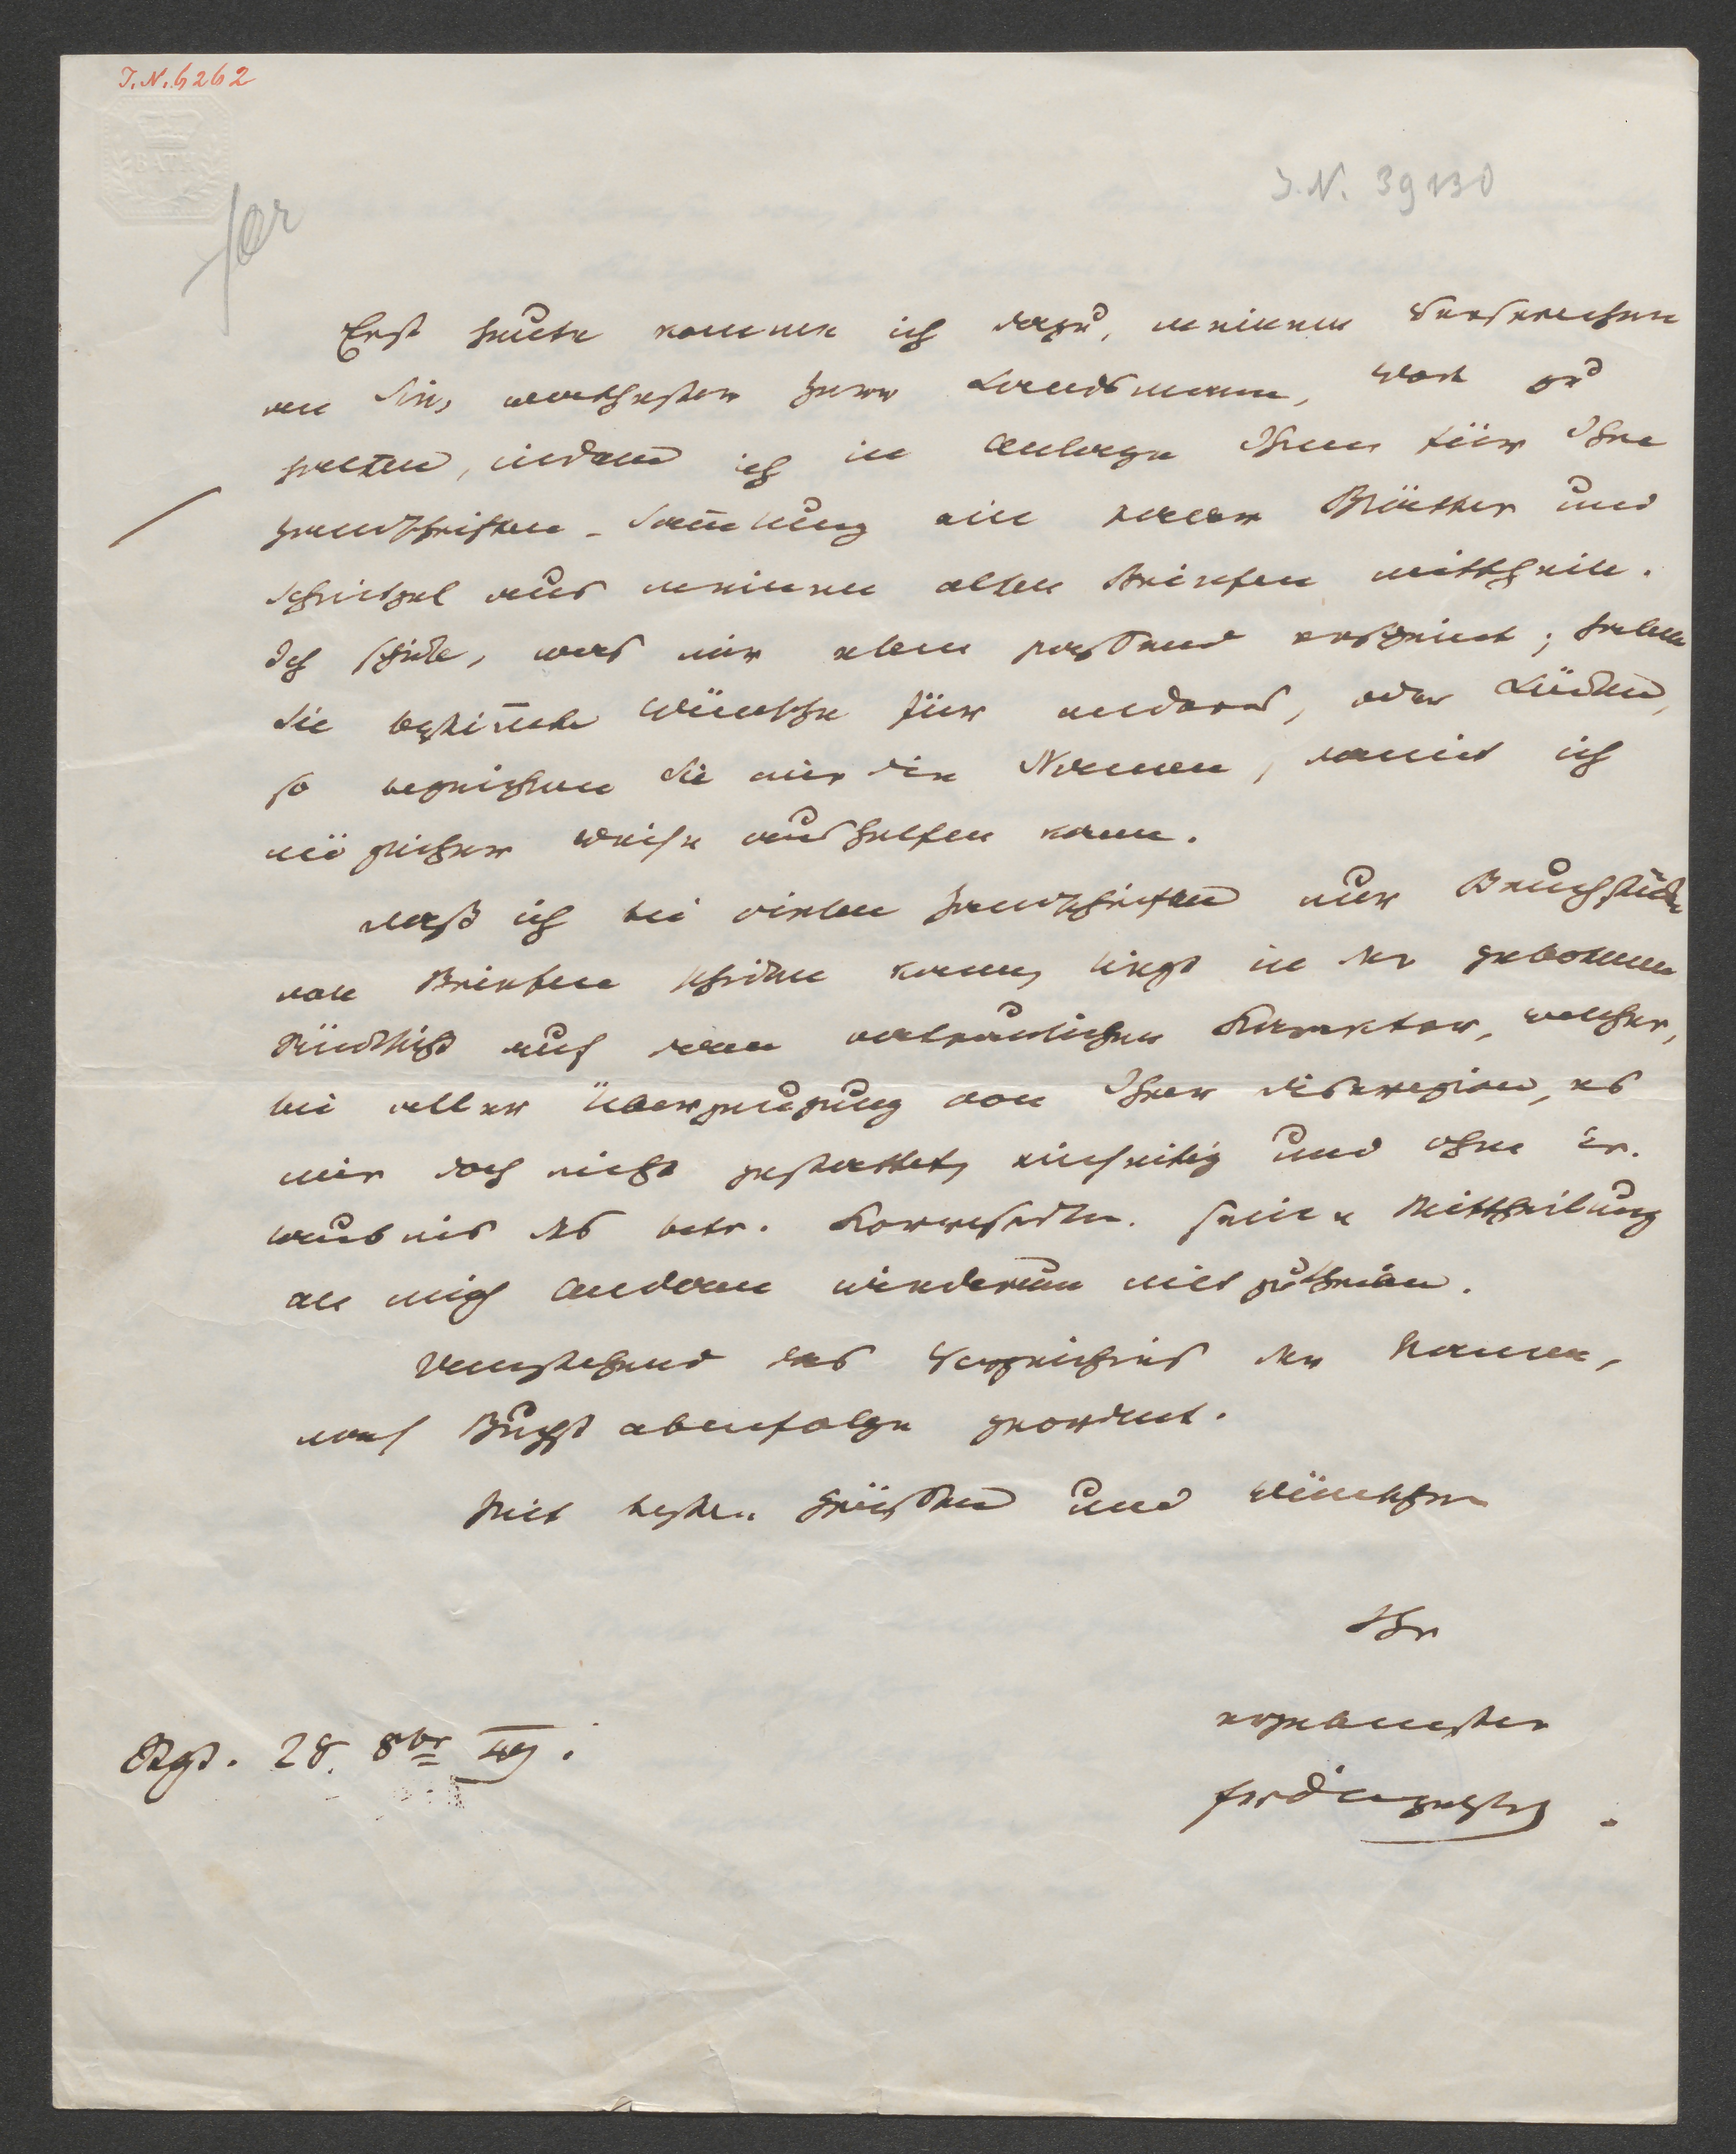 I.N. 6262
BATH
I.N. 39130
Erst heute komme ich dazu, meinem Versprechen
an Sie, werthester Herr Landsmann, Wort zu
halten, indem ich in Anlage Ihnen für Ihre
Handschriften-Sam̅lung ein paar Blätter und
Schnitzel aus meinen alten Briefen mittheile.
Ich schicke, was mir eben passend erscheint; haben
Sie bestim̅te Wünsche für anderes, oder Lücken,
so bezeichnen Sie mir die Namen, damit ich
möglicher Weise aushelfen kann.
Daß ich bei vielen Handschriften nur Bruchstücke
von Briefen schicken kann, liegt in der gebotenen
Rücksicht auf den vertraulichen Karakter, welcher,
bei aller Überzeugung von Ihrer Diskrezion, es
mir doch nicht gestattet, einseitig und ohne Er-
laubnis des betr. Korrespdten. seine Mittheilung
an mich Anderen wiederum mitzutheilen.
Umstehend das Verzeichnis der Namen,
nach Buchstabenfolge geordnet.
Mit besten Grüssen und Wünschen
Ihr
ergebenster
Stgt. 28. 8br